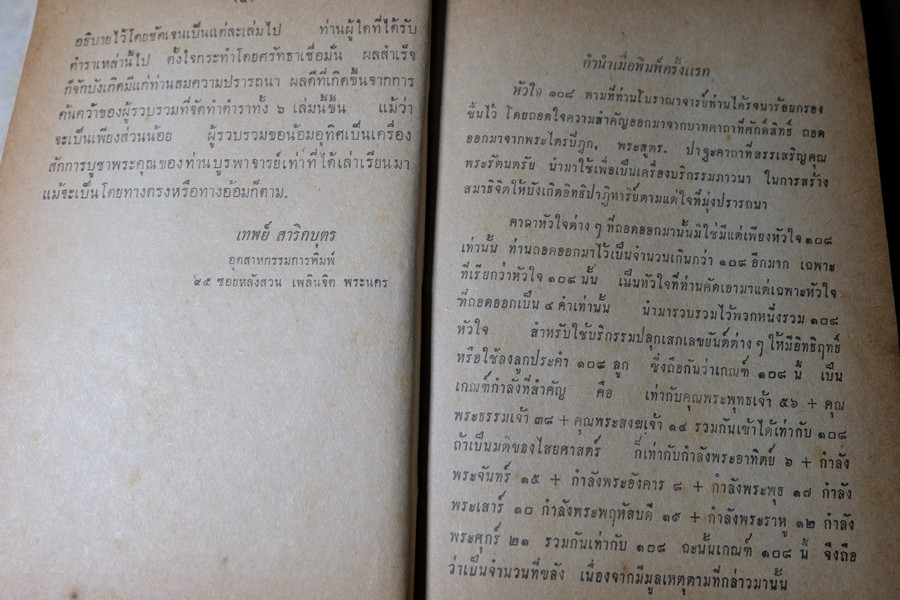 อธิบายไว้โดยชัดเจนเป็นแต่ละเล่มไป ท่านผู้ใดที่ได้รับ
ตำราเหล่านี้ไป ตั้งใจกระทำโดยศรัทธาเชื่อมั่น ผลสำเร็จ
ก็จักบังเกิดมีแก่ท่านสมความปรารถนา ผลดีที่เกิดขึ้นจากการ
ค้นคว้าของผู้รวบรวมที่จัดทำตำราทั้ง ๖ เล่มนี้ขึ้น แม้ว่า
จะเป็นเพียงส่วนน้อย ผู้รวบรวมขอน้อมอุทิศเป็นเครื่อง
สักการบูชาพระคุณของท่านบูรพาจารย์เท่าที่ได้เล่าเรียนมา
แม้จะเป็นโดยทางตรงหรือทางอ้อมก็ตาม.
เทพย์ สาริกบุตร
อุตสาหกรรมการพิมพ์
๖๕ ซอยหลังสวน เพลินจิต พระนคร
คำนำเมื่อพิมพ์ครั้งแรก
หัวใจ ๑๐๘ ตามที่ท่านโบราณาจารย์ท่านได้รจนาร้อยกรอง
ขึ้นไว้ โดยถอดใจความสำคัญออกมาจากบาทคาถาที่ศักดิ์สิทธิ์ ถอด
ออกมาจากพระไตรปิฎก, พระสูตร. ปาฐะคาถาที่สรรเสริญคุณ
พระรัตนตรัย นำมาใช้เพื่อเป็นเครื่องบริกรรมภาวนา ในการสร้าง
สมาธิจิตให้บังเกิดอิทธิปาฏิหาริย์ตามแต่ใจที่มุ่งปรารถนา
คาถาหัวใจต่าง ๆ ที่ถอดออกมานั้นมิใช่มีแต่เพียงหัวใจ ๑๐๘
เท่านั้น ท่านถอดออกมาไว้เป็นจำนวนเกินกว่า ๑๐๘ อีกมาก เฉพาะ
ที่เรียกว่าหัวใจ ๑๐๘ นั้น เป็นหัวใจที่ท่านคัดเอามาแต่เฉพาะหัวใจ
ที่ถอดออกเป็น ๔ คำเท่านั้น นำมารวบรวมไว้พวกหนึ่งรวม ๑๐๘
หัวใจ สำหรับใช้บริกรรมปลุกเสกเลขยันต์ต่าง ๆ ให้มีอิทธิฤทธิ์
หรือใช้ลงลูกประคำ ๑๐๘ ลูก ซึ่งถือกันว่าเกณฑ์ ๑๐๘ นี้ เป็น
เกณฑ์กำลังที่สำคัญ คือ เท่ากับคุณพระพุทธเจ้า ๕๖ + คุณ
พระธรรมเจ้า ๓๘ + คุณพระสงฆเจ้า ๑๔ รวมกันเข้าได้เท่ากับ ๑๐๘
ถ้าเป็นมติของไสยศาสตร์ ก็เท่ากับกำลังพระอาทิตย์ ๖ + กำลัง
พระจันทร์ ๑๕ + กำลังพระอังคาร ๘ + กำลังพระพุธ ๑๗ กำลัง
พระเสาร์ ๑๐ กำลังพระพฤหัสบดี ๑๙ + กำลังพระราหู ๑๒ กำลัง
พระศุกร์ ๒๑ รวมกันเท่ากับ ๑๐๘ ฉะนั้นเกณฑ์ ๑๐๘ นี้ จึงถือ
ว่าเป็นจำนวนที่ขลัง เนื่องจากมีมูลเหตุตามที่กล่าวมานั้น